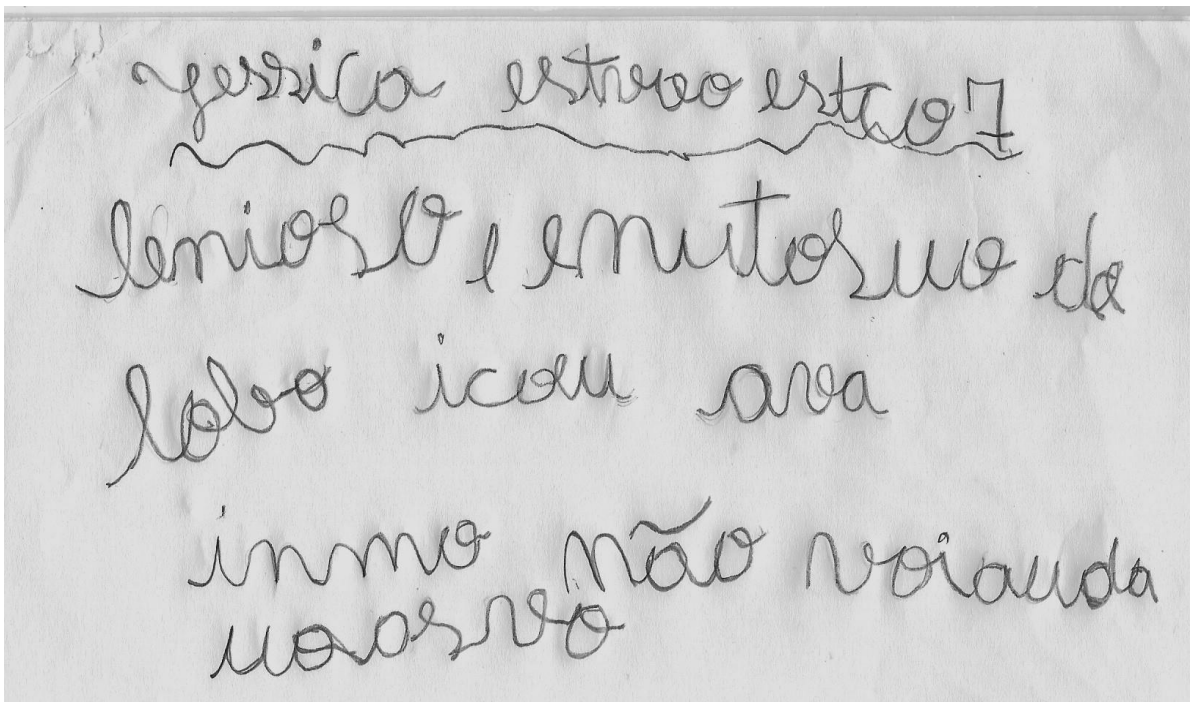 jessica estrvoo estço 1
leniosl0, e enutosuo da
lobo icou ava
inmo não voiauda
uoosvo